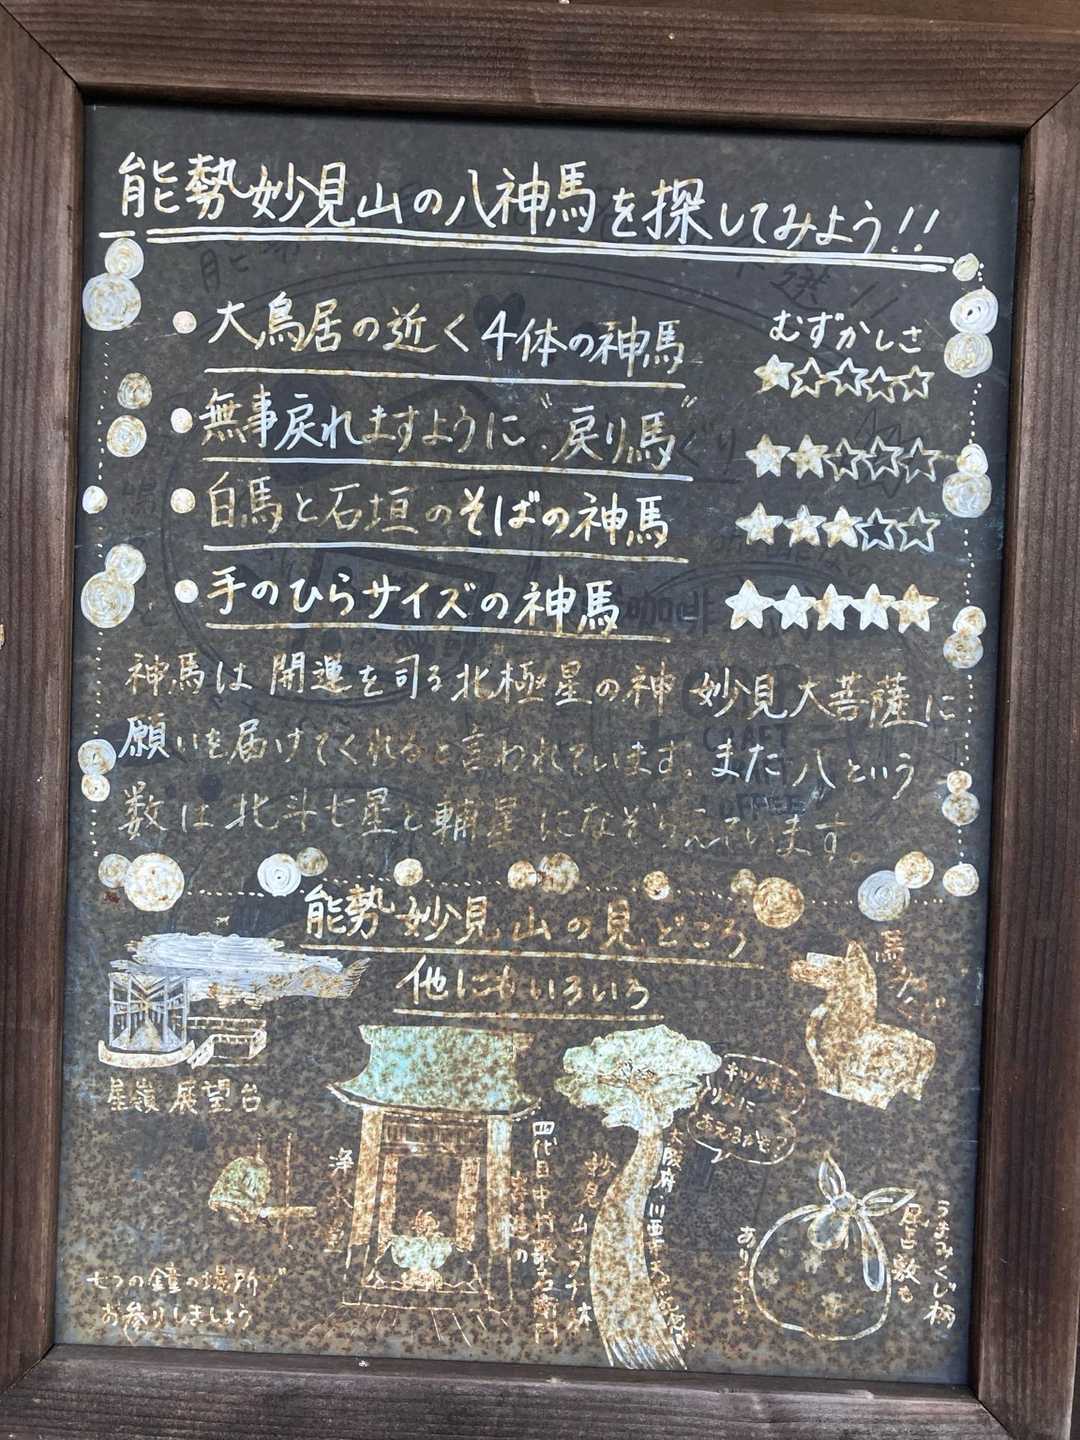 能勢妙見山の八神馬を探してみよう!!
むずかしさ
・大鳥居の近く4体の神馬 ★☆☆☆☆
・無事戻れますように“戻り馬” ★★☆☆☆
・白馬と石垣のそばの神馬 ★★★☆☆
・手のひらサイズの神馬 ★★★★★
神馬は開運を司る北極星の神 妙見大菩薩に
願いを届けてくれると言われています。また八という
数は北斗七星と輔星になぞらえています。
能勢妙見山の見どころ
他にもいろいろ
馬みくじ
星嶺 展望台
キツツキや
リスに
あえるかも?
四代目中村歌右衛門
寄進の
浄水堂
大阪府 川西市 天然記念物
妙見山のブナ林
七つの鐘の場所
お参りしましょう
うまみくじ柄
風呂敷も
あります